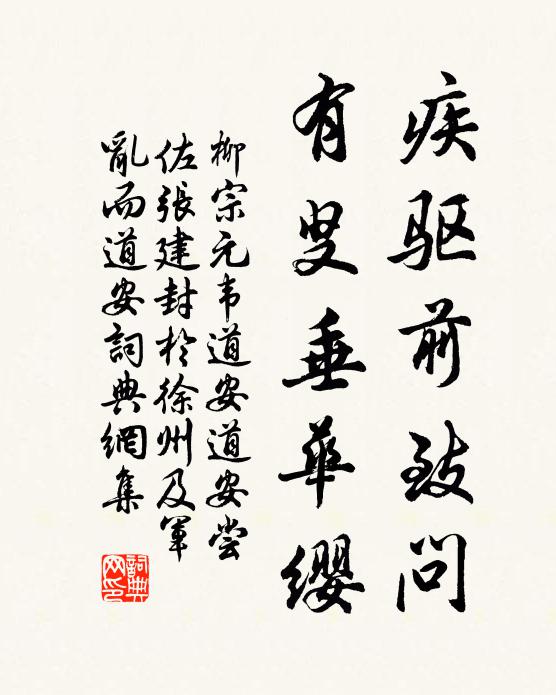 疾驱前致问
有叟垂华缨
柳宗元韦道安道安尝
佐張建封於徐州及軍
亂而道安詞典網集
詞典网印